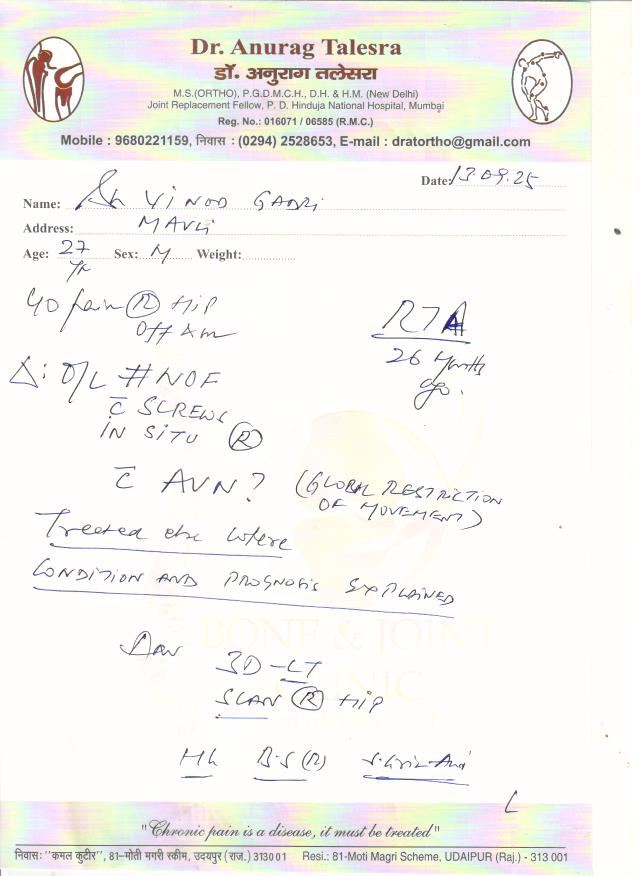 Dr. Anurag Talesra
डॉ. अनुराग तलेसरा
M.S.(ORTHO), P.G.D.M.C.H., D.H. & H.M. (New Delhi)
Joint Replacement Fellow, P. D. Hinduja National Hospital, Mumbai
Reg. No.: 016071 / 06585 (R.M.C.)
Mobile : 9680221159, निवास : (0294) 2528653, E-mail : dratortho@gmail.com
Date: 13.09.25
Name: Sh VINOD GADRI
Address: MAVLI
Age: 27 yr Sex: M Weight:
Pain (R) HIP
RTA
26 Months
ago.
Δ: O/L # NOF
c̄ SCREWS
IN SITU (R)
c̄ AVN? (GLOBAL RESTRICTION
OF MOVEMENT)
Treated else where
CONDITION AND PROGNOSIS EXPLAINED
BONE & JOINT
CLINIC
Adv 3D-CT
SCAN (R) HIP
B.S (R)
"Chronic pain is a disease, it must be treated"
निवास: "कमल कुटीर", 81-मोती मगरी स्कीम, उदयपुर (राज.) 313001 Resi.: 81-Moti Magri Scheme, UDAIPUR (Raj.) - 313 001